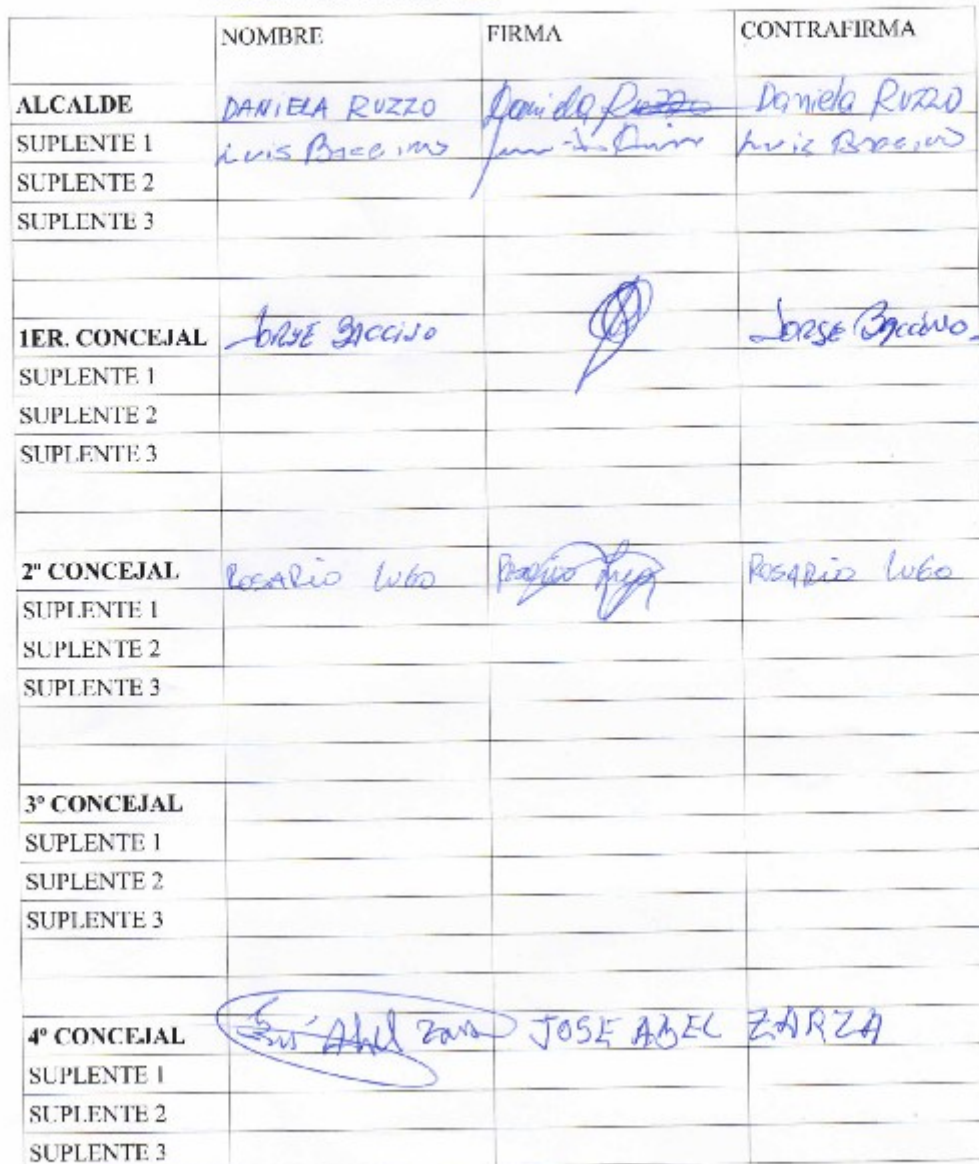 NOMBRE FIRMA CONTRAFIRMA
ALCALDE DANIELA RUZZO Daniela Ruzzo Daniela RUZZO
SUPLENTE 1 Luis Baccino Luis Baccino
SUPLENTE 2
SUPLENTE 3
1ER. CONCEJAL JORGE BACCINO JORGE Baccino
SUPLENTE 1
SUPLENTE 2
SUPLENTE 3
2º CONCEJAL ROSARIO LUGO Rosario Lugo ROSARIO LUGO
SUPLENTE 1
SUPLENTE 2
SUPLENTE 3
3º CONCEJAL
SUPLENTE 1
SUPLENTE 2
SUPLENTE 3
4º CONCEJAL José Abel Zarza JOSE ABEL ZARZA
SUPLENTE 1
SUPLENTE 2
SUPLENTE 3